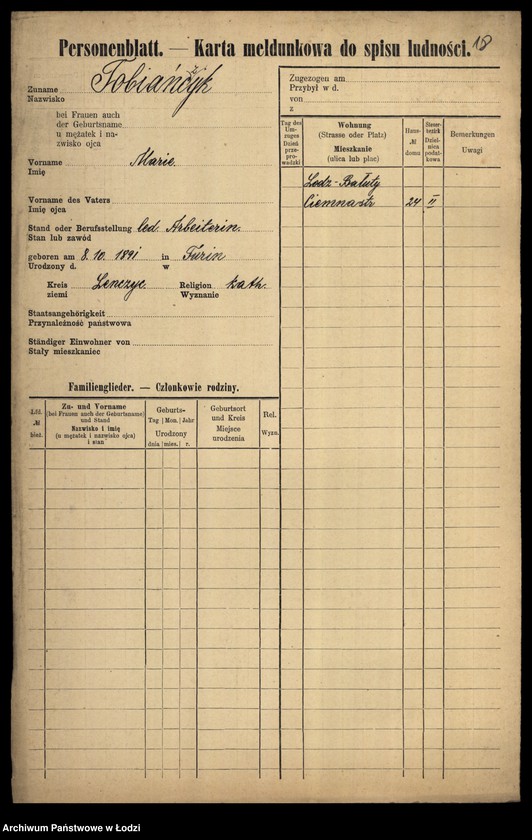 Personenblatt. — Karta meldunkowa do spisu ludności. 18
Zuname Tobiańczyk
Nazwisko
bei Frauen auch
der Geburtsname
u mężatek i na-
zwisko ojca
Vorname Marie.
Imię
Vorname des Vaters
Imię ojca
Stand oder Berufsstellung led. Arbeiterin.
Stan lub zawód
geboren am 8. 10. 1891 in Turin
Urodzony d. w
Kreis Lenczyc. Religion kath.
ziemi Wyznanie
Staatsangehörigkeit
Przynależność państwowa
Ständiger Einwohner von
Stały mieszkaniec
Zugezogen am
Przybył w d.
von
z
Tag des
Um-
zuges
Dzień
prze-
pro-
wadzki
Wohnung
(Strasse oder Platz)
Mieszkanie
(ulica lub plac)
Haus-
№
domu
Steuer-
bezirk
Dziel-
nica
podat-
kowa
Bemerkungen
Uwagi
Lodz-Bałuty
Ciemnastr 24 II
Familienglieder. — Członkowie rodziny.
Lfd.
№
bież.
Zu- und Vorname
(bei Frauen auch der Geburtsname)
und Stand
Nazwisko i imię
(u mężatek i nazwisko ojca)
i stan
Geburts-
Tag | Mon. | Jahr
Urodzony
dnia | mies. | r.
Geburtsort
und Kreis
Miejsce
urodzenia
Rel.
Wyzn.
Archiwum Państwowe w Łodzi